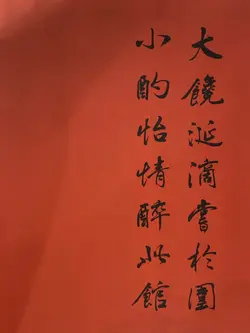 大饞涎滴嘗於
小酌怡情醉此館